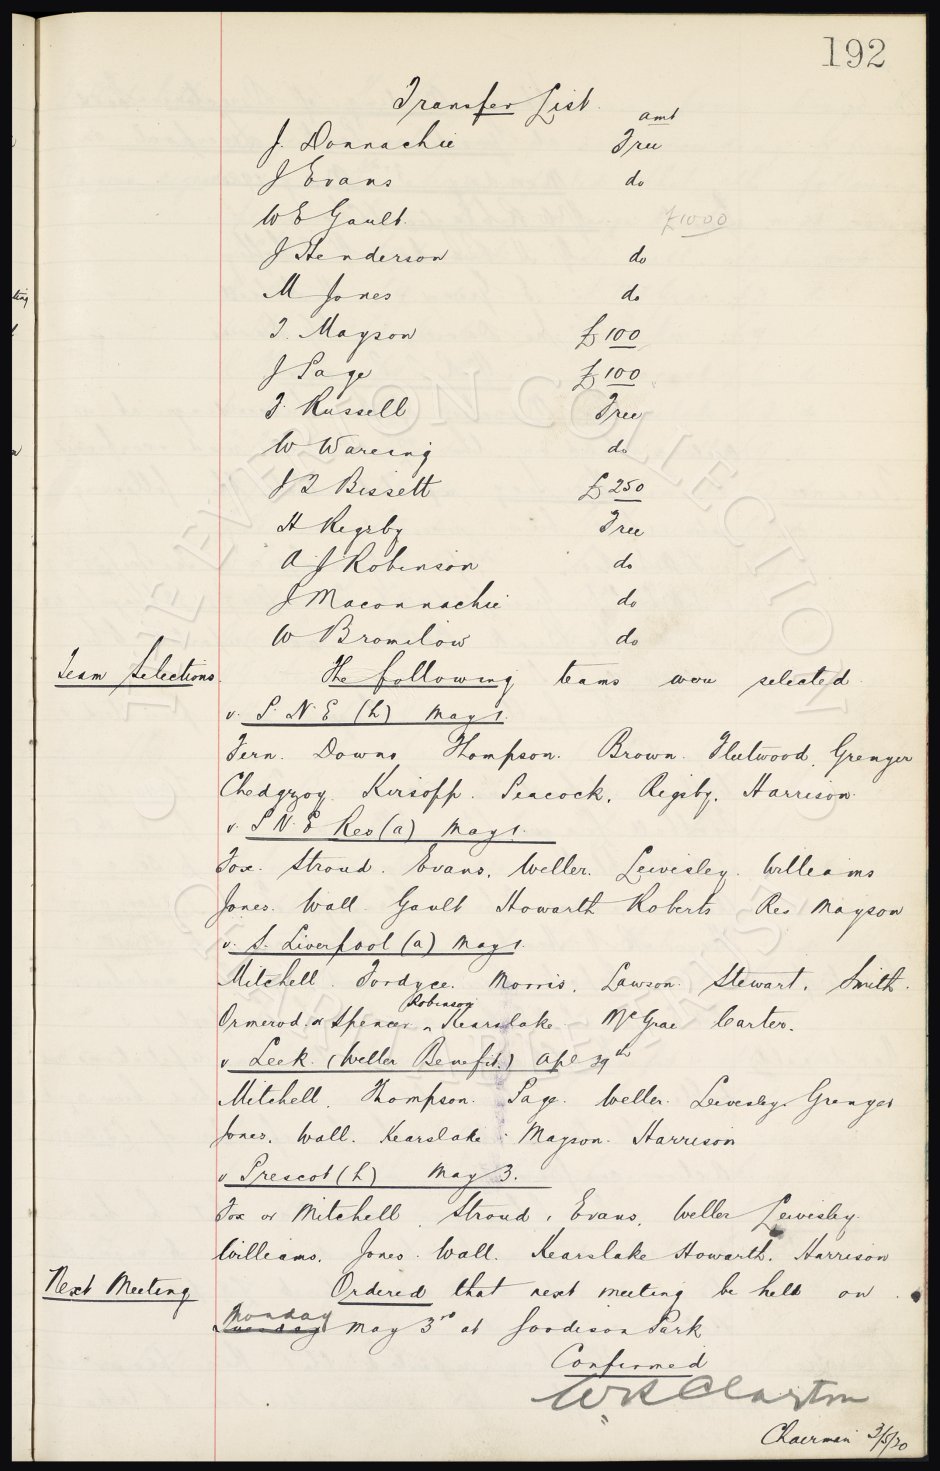 192
Transfer List.
amt
J. Donnachie Free
J Evans do
W E Gault £1000
J Henderson do
M Jones do
T. Mayson £100
J Page £100
T. Russell Free
W Wareing do
J T Bissett £250
H Rigsby Free
A J Robinson do
J Maconnachie do
W Bromilow do
Team Selections. The following teams were selected.
v. S. N. E (h) May 1.
Fern. Downs Thompson. Brown. Fleetwood. Grenyer
Chedgzoy. Kirsopp. Peacock. Rigsby. Harrison.
v. S N. E Res (a) May 1.
Fox. Stroud. Evans. Weller. Lewisley. Williams
Jones. Wall. Gault Howarth Roberts Res Mayson
v. S. Liverpool (a) May 1.
Mitchell. Fordyce. Morris. Lawson. Stewart. Smith.
Robinson
Ormerod. or Spencer Kearslake. McGrae Carter.
v Leek. (Weller Benefit.) Apl 29th
Mitchell. Thompson. Page. Weller. Lewisley. Grenyer
Jones. Wall. Kearslake. Mayson. Harrison
v Prescot (h) May 3.
Fox or Mitchell. Stroud. Evans. Weller Lewisley.
Williams. Jones. Wall. Kearslake Howarth. Harrison
Next Meeting Ordered that next meeting be held on
Monday
Tuesday May 3rd at Goodison Park.
Confirmed
W R Clayton
Chairman 3/5/20
THE EVERTON COLLECTION